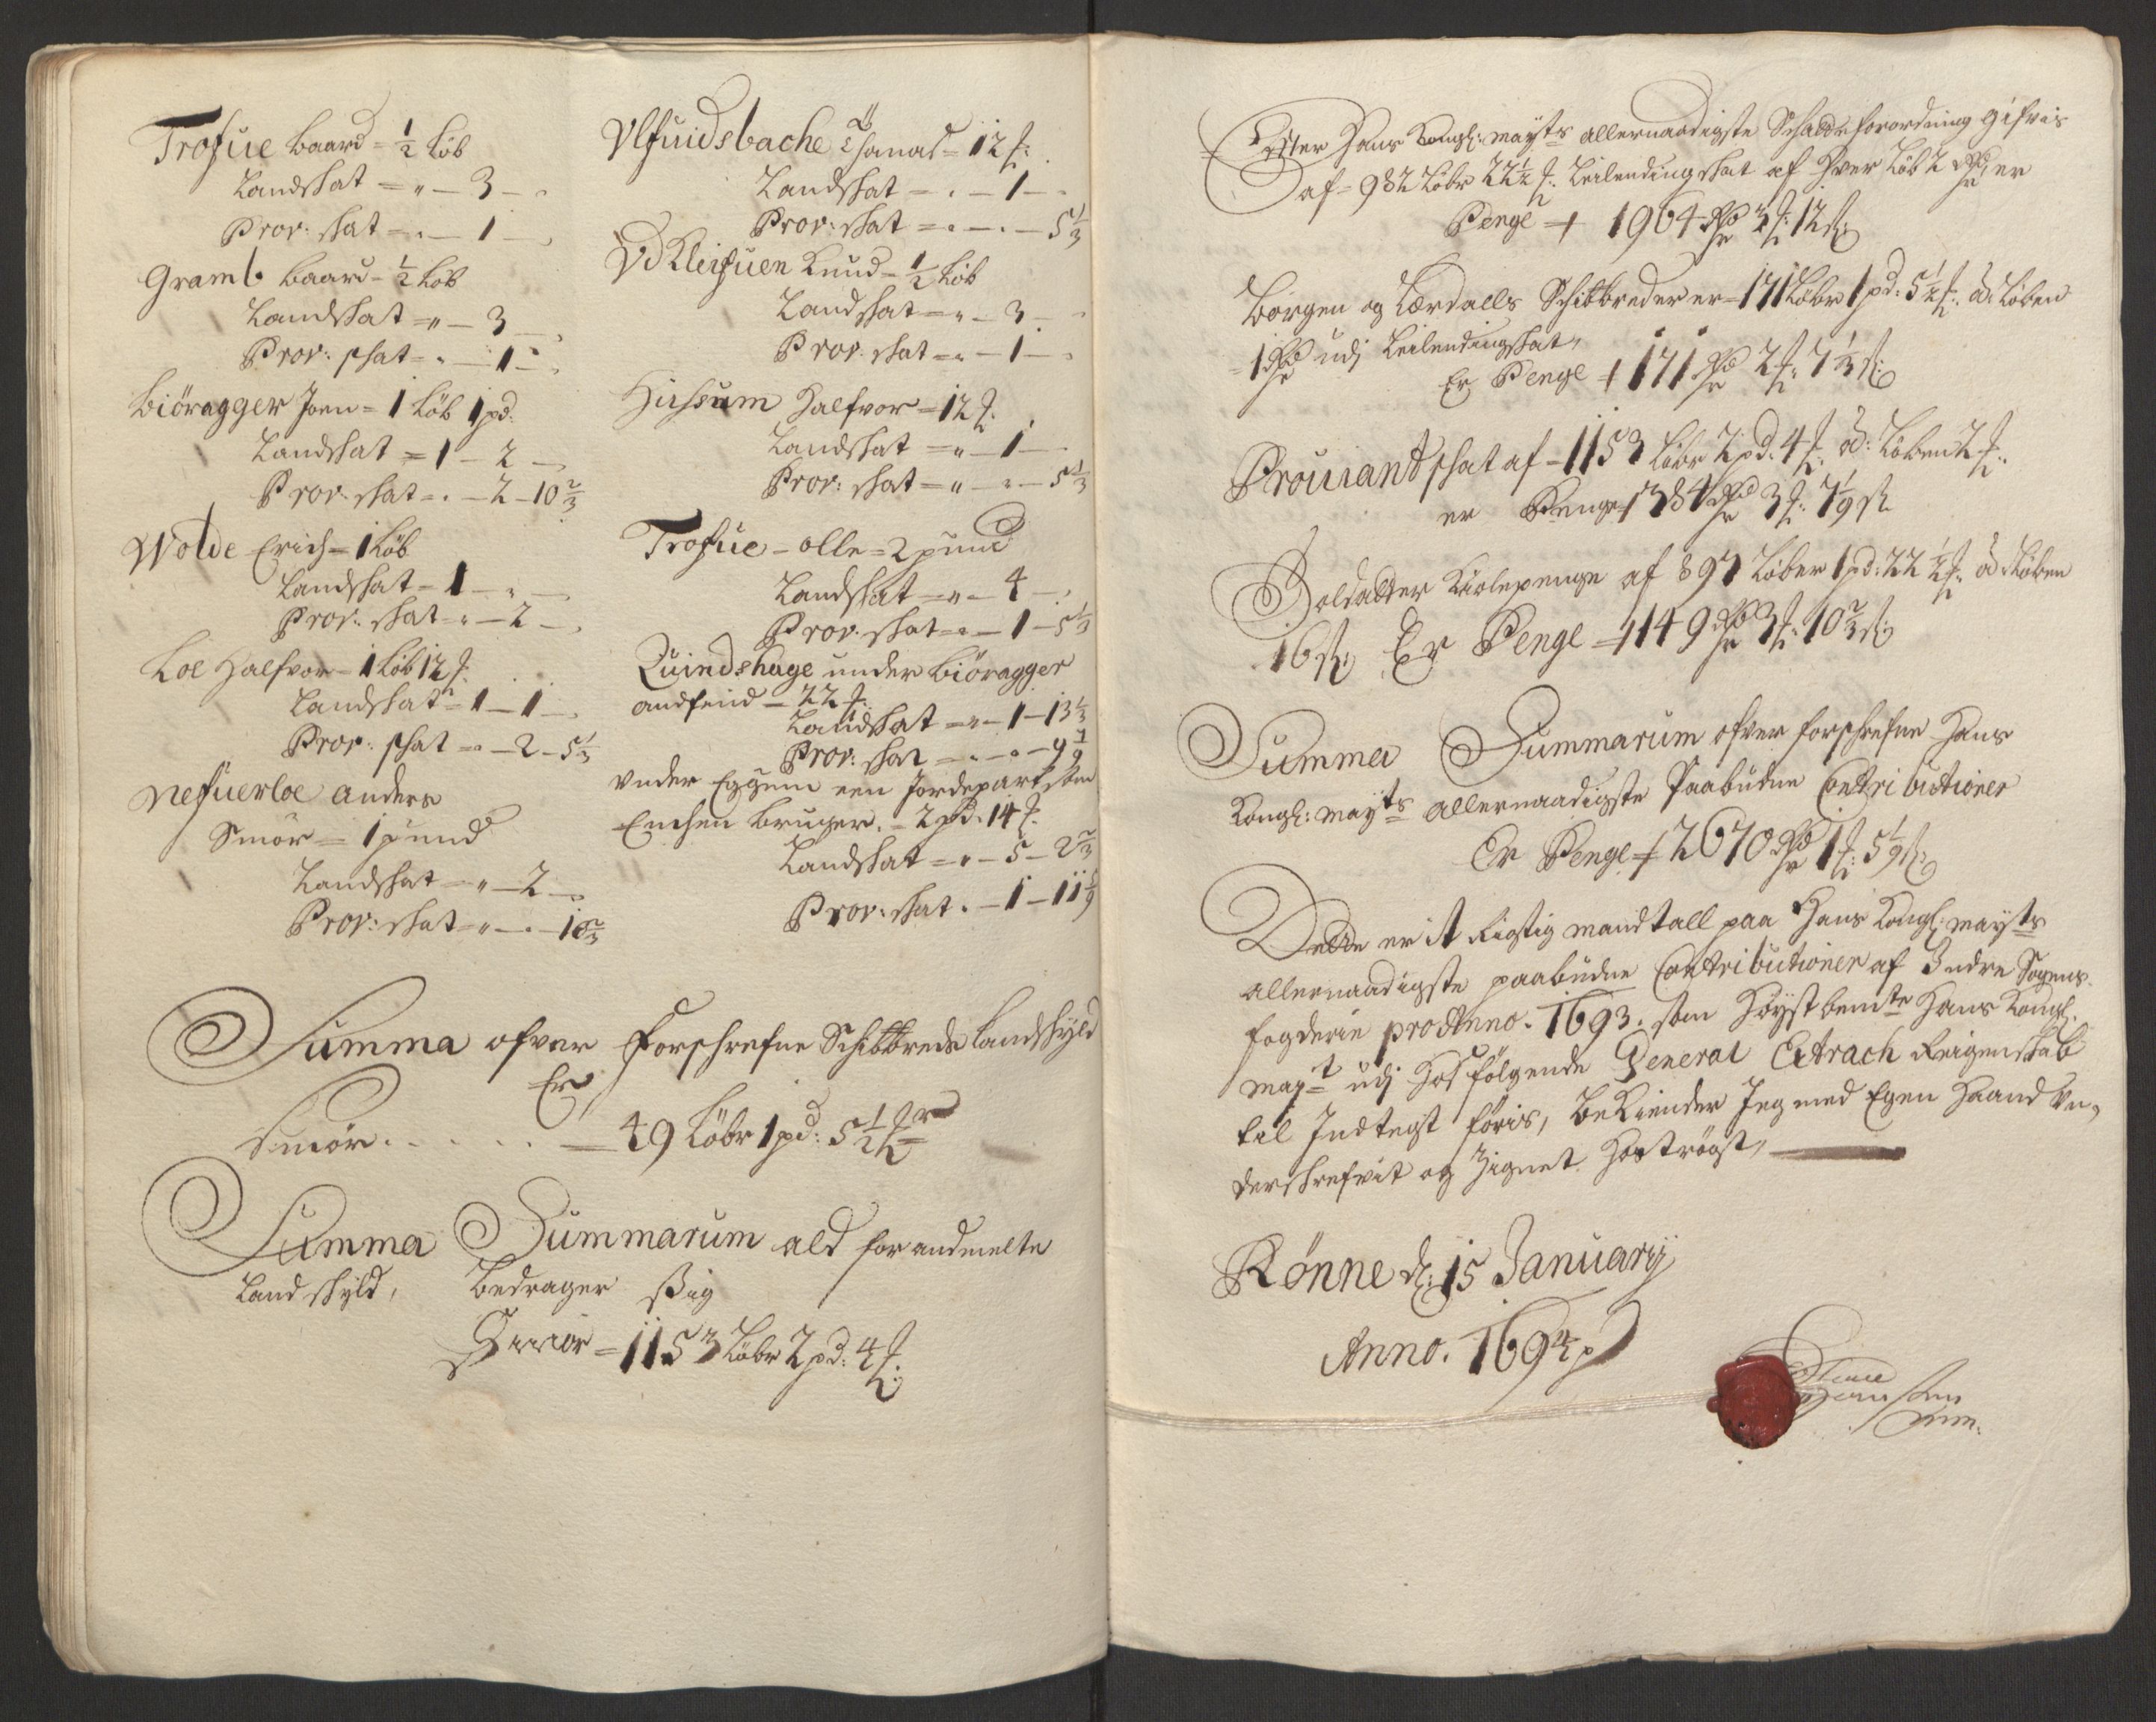 Trofue Baard = ½ Løb
Landskat = " — 3 —
Prov: skat = . — 1 —
Gramb Baard = ½ Løb
Landskat = " — 3 —
Prov: skat = . — 1 —
Biöragger Joen = 1 Løb 1 pd:
Landskat = 1 — 2 —
Prov: skat = . — 2 — 10⅔
Wolde Erich = 1 Løb
Landskat = 1 — " —
Prov: skat = " — 2 —
Loe Halfvor = 1 Løb 12 ℔:
Landskat = 1 — 1 —
Prov: skat = " — 2 — 5⅓
Nefuerloe Anders
Smör = 1 pund
Landskat = " — 2 —
Prov: skat = " — . — 10⅔
Ulfuidsbache Thomas = 12 ℔:
Landskat = . — 1 —
Prov: skat = . — . — 5⅓
Vd Kleifuen Knud = ½ Løb
Landskat = " — 3 —
Prov: skat = " — 1 —
Hirsum Halfvor = 12 ℔:
Landskat = " — 1 —
Prov: skat = " — " — 5⅓
Trofue = Olle = 2 pund
Landskat = " — 4 —
Prov: skat = " — 1 — 5⅓
Quindshage under Biöragger
Andfind = 22 ℔:
Landskat = " — 1 — 13⅓
Prov: skat = . — . — 9 7/9
Under Eggum een Jordepart som
Enchen Bruger. = 2 pd. 14 ℔:
Landskat = " — 5 — 2⅔
Prov: skat . — 1 — 11 5/9
Summa ofver Forschrefne Schibbrede Landskyld
Er
Smör . . . . . — 49 Løbr 1 pd: 5½ ℔r
Summa Summarum ald forandmelte
Landskyld, Bedrager sig
Smör = 1153 Løbr 2 pd: 4 ℔:
Efter Hans Kongl: Mayts Allernaadigste Schatteforordning gifvis
af = 982 Løbr 22½ ℔: Leilendingskat af Hver Løb 2 Rdr, er
Penge + 1964 Rdr 3 ℔: 12 sk
Borgen og Lærdalls Schibbreder er = 171 Løbr 1 pd: 5½ ℔: à Løben
= 1 Rdr udj Leilendingskat,
Er Penge + 171 Rdr 2 ℔: 7⅓ sk
Proviantskat af = 1153 Løbr 2 pd: 4 ℔: à: Løben 2 ℔:
er Penge + 384 Rdr 3 ℔: 7 1/9 sk
Soldatter Kiolepenge af 897 Løber 1 pd: 22½ ℔: à Løben
16 sk, Er Penge + 149 Rdr 3 ℔: 10⅔ sk
Summa Summarum ofver forschrefne Hans
Kongl: Mayts Allernaadigste Paabudne Contributioner
Er Penge + 2670 Rdr 1 ℔: 5 1/9 sk
Dette er it Rigtig mandtall paa Hans Kongl: Mayts
Allernaadigste paabudne Contributioner af Indre Sogens
fogderie pro Anno. 1693. som Høystbemte Hans Kongl:
Mayt udj Hosfølgende General Extrach Reigenskab
til Indtegt føris, Bekiender Jeg med Egen Haand Un,
derskrefvit og Zignet Hostrøgt,
Rønne d: 15 Januarij
Anno. 1694